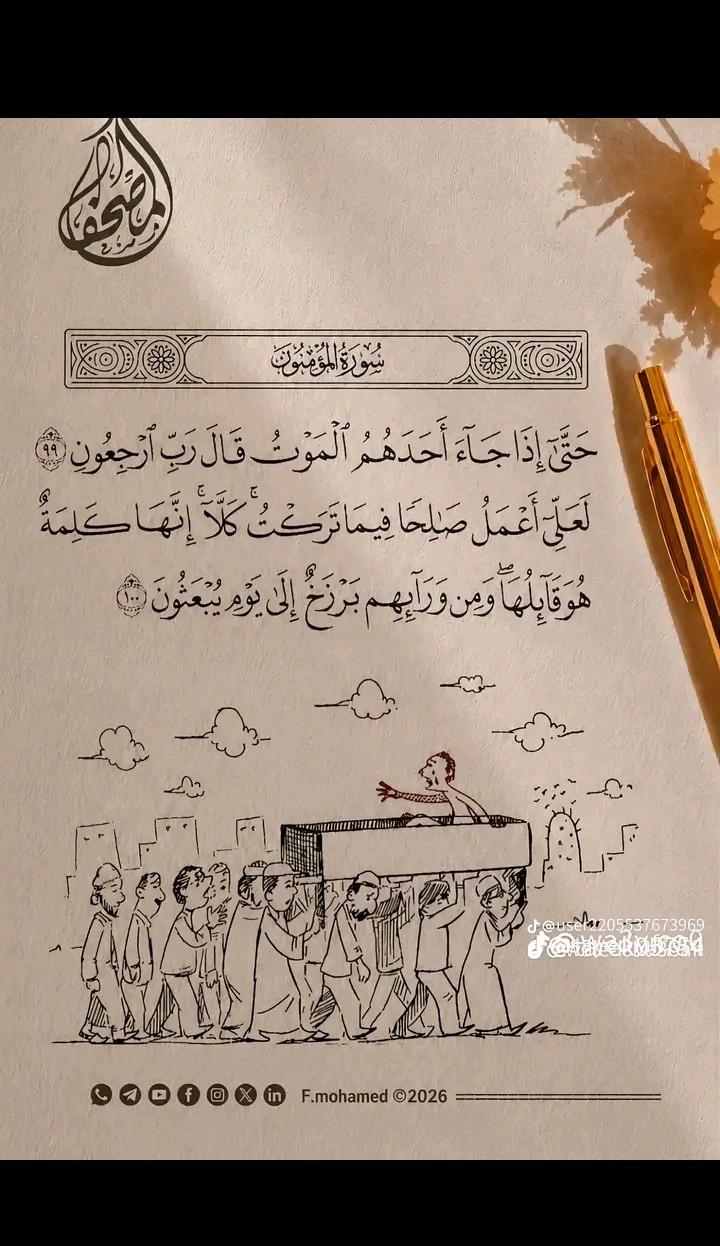 المصحف
سُورَةُ المُؤْمِنُونَ
حَتَّىٰٓ إِذَا جَآءَ أَحَدَهُمُ ٱلْمَوْتُ قَالَ رَبِّ ٱرْجِعُونِ ٩٩
لَعَلِّىٓ أَعْمَلُ صَـٰلِحًا فِيمَا تَرَكْتُ ۚ كَلَّآ ۚ إِنَّهَا كَلِمَةٌ
هُوَ قَآئِلُهَا ۖ وَمِن وَرَآئِهِم بَرْزَخٌ إِلَىٰ يَوْمِ يُبْعَثُونَ ١٠٠
@user2205537673969
F.mohamed ©2026